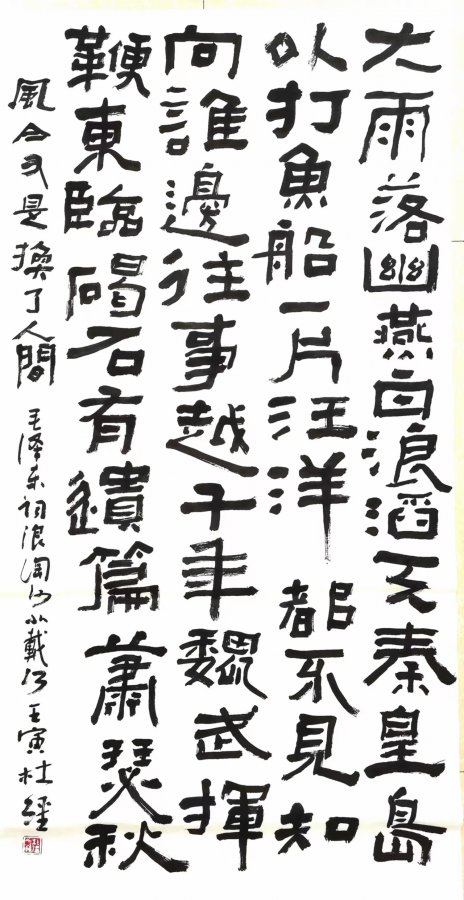 大雨落幽燕白浪滔天秦皇島
以打魚船一片汪洋都不見知
向誰邊往事越千年魏武揮
鞭東臨碣石有遺篇蕭瑟秋
風今又是換了人間 毛泽东词浪淘沙北戴河 壬寅杜經